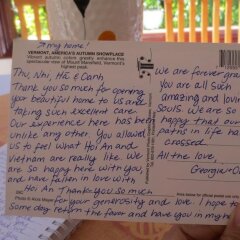 my home!
VERMONT, AMERICA'S AUTUMN SNOWPLACE
Vermont autumn colors greatly enhance this
spectacular view of Mount Mansfield, Vermont's
highest peak.
Thu, Nhi, Ha & Canh,
Thank you so much for opening
your beautiful home to us and
taking such excellent care.
Our experience here has been
unlike any other. You allowed
us to feel what Hoi An and
Vietnam are really like. We are
so happy here with you
and have fallen in love with
Hoi An. Thank you so much
for your generosity and love. I hope to
some day return the favor and have you in my
We are forever
you are all such
amazing and loving
souls. We are so
happy that our
paths in life ha
crossed.
All the love,
Georgia